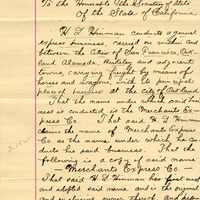 To the Honorable The Secretary of State
Of the State of California.
H D Hinman conducts a general
express business, carried on within and
between the Cities of San Francisco, Oak
land Alameda, Berkeley and adjacent
towns, carrying freight by means of
horses and wagons, with its principal
place of business at the City of Oakland
That the name under which said busi
ness is conducted is the Merchants Ex
press Co. That said H D Hinman
claims the name of Merchants Express
Co. as the name under which he con
ducts his said business. That the
following is a copy of said name
Merchants Express Co.
That said H D Hinman has first used
and adopted said name and is the original
and exclusive owner through and